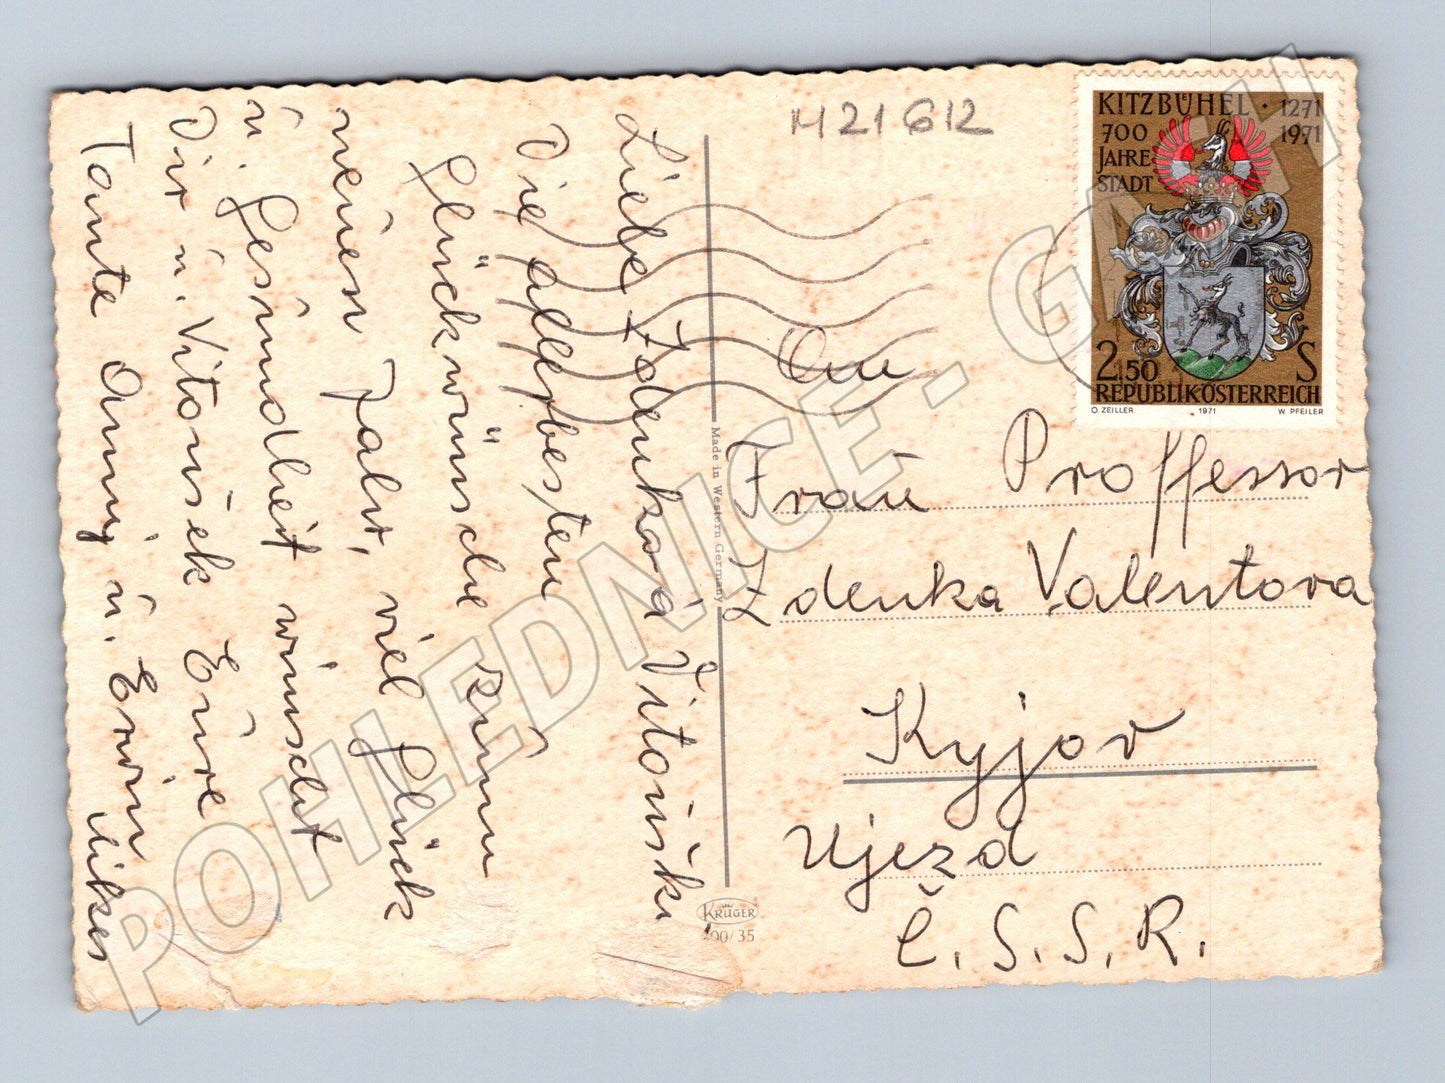 Liebe Zdenka a Vitoušku
Die allerbesten
Glückwünsche zum
neuen Jahr, viel Glück
u. Gesundheit wünscht
Dir u. Vitoušek Eure
Tante Anny u. Erwin
M21612
KITZBÜHEL · 1271
700 1971
JAHRE
STADT
2,50 S
REPUBLIK ÖSTERREICH
O. ZEILLER 1971 W. PFEILER
An
Frau Proffessor
Zdenka Valentova
Kyjov
Ujezd
Č.S.S.R.
Made in Western Germany
KRÜGER
00/35
POHLEDNICE - GASH